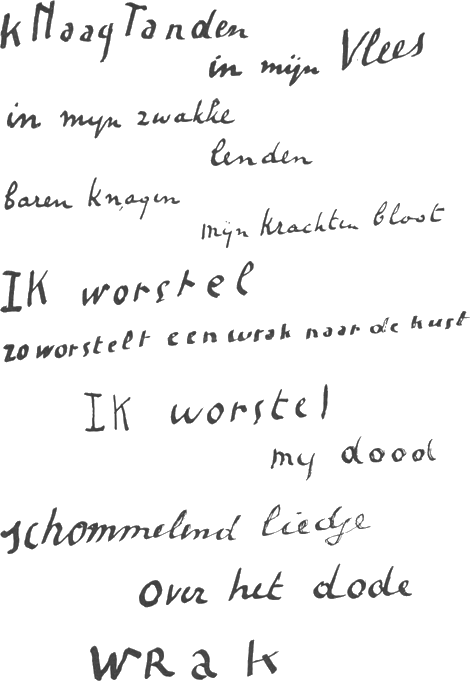 KNaagTanden
in mijn Vlees
in mijn zwakke
lenden
baren knagen
mijn krachten bloot
IK worstel
zo worstelt een wrak naar de kust
IK worstel
my dood
schommelend liedje
over het dode
WRak